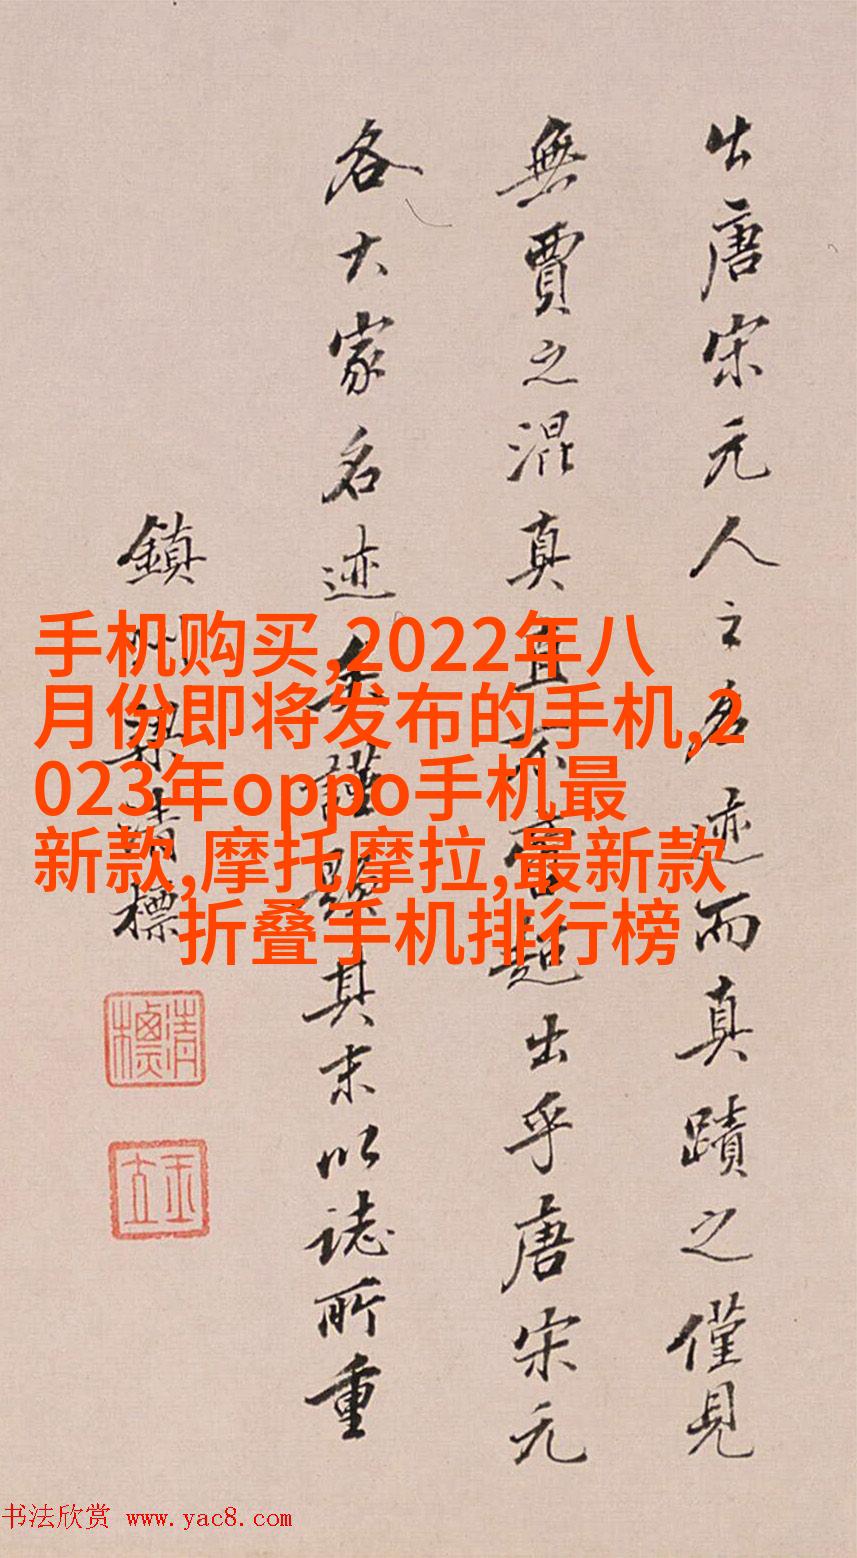 出唐宋元人之名迹而真蹟之僅見
無賈之混真且不啻超出乎唐宋元
各大家名迹矣謹題其末以誌所重
鎮州梁清標
手机购买,2022年八
月份即将发布的手机,2
023年oppo手机最
新款,摩托摩拉,最新款
折叠手机排行榜
书法欣赏 www.yac8.com